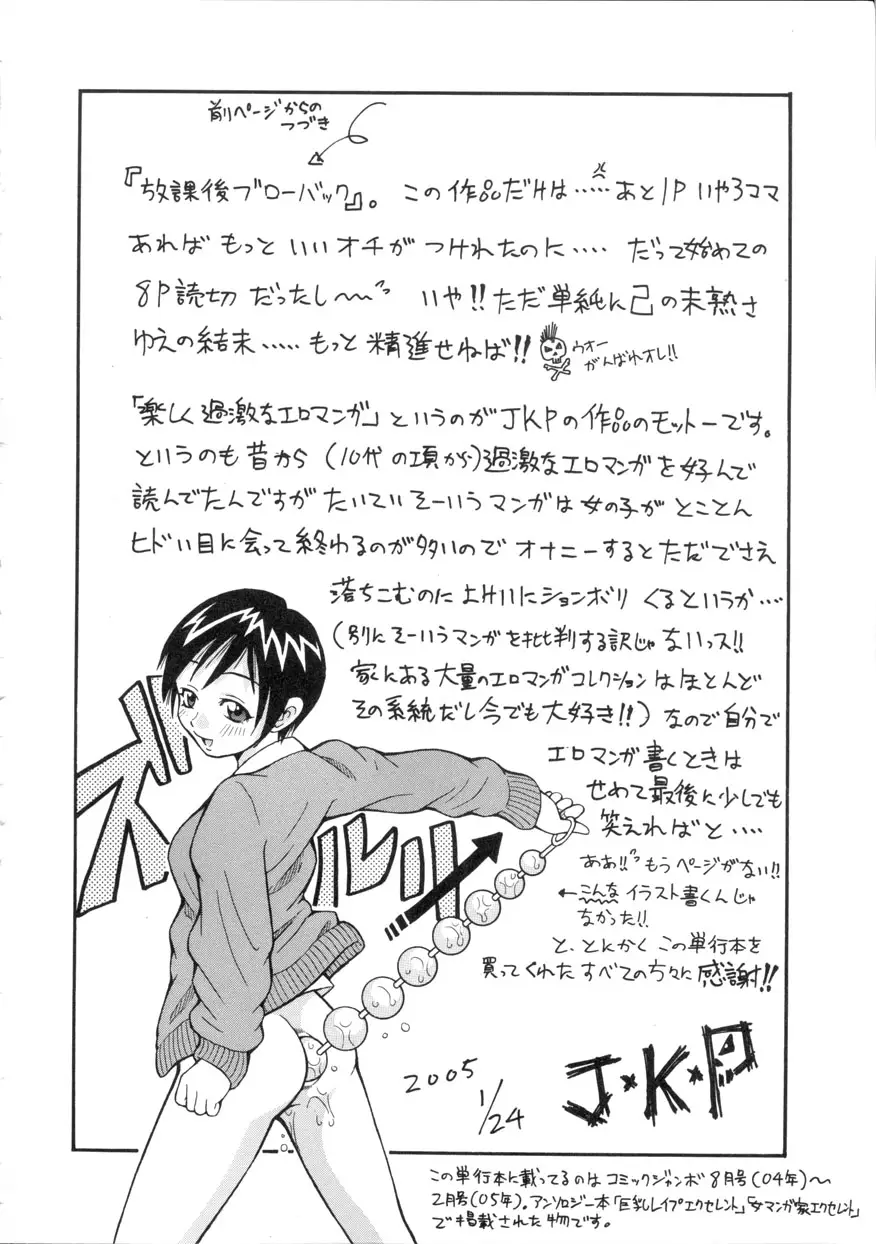 前ページからの
つづき
『放課後ブローバック』。この作品だけは……あと1Pいや3コマ
あればもっといいオチがつけれたのに…. だって始めての
8P読切だったし〜〜 いや!!ただ単純に己の未熟さ
ゆえの結末…… もっと精進せねば!!
ウオー
がんばれオレ!!
「楽しく過激なエロマンガ」というのがJKPの作品のモットーです。
というのも昔から(10代の項から)過激なエロマンガを好んで
読んでたんですがたいていそーいうマンガは女の子がとことん
ヒドい目に会って終わるのが多いのでオナニーするとただでさえ
落ちこむのによけいにションボリくるというか…
(別にそーいうマンガを批判する訳じゃないっス!!
家にある大量のエロマンガコレクションはほとんど
その系統だし今でも大好き!!)なので自分で
エロマンガ書くときは
せめて最後に少しでも
笑えればと….
ああ!!もうページがない!!
←こんなイラスト書くんじゃ
なかった!!
と、とにかくこの単行本を
買ってくれたすべての方々に感謝!!
ズルルリ
2005
1/24
J・K・P
この単行本に載ってるのはコミックジャンボ8月号(04年)〜
2月号(05年)。アンソロジー本「巨乳レイプエクセレント」「女マンガ家エクセレント」
で掲載された物です。